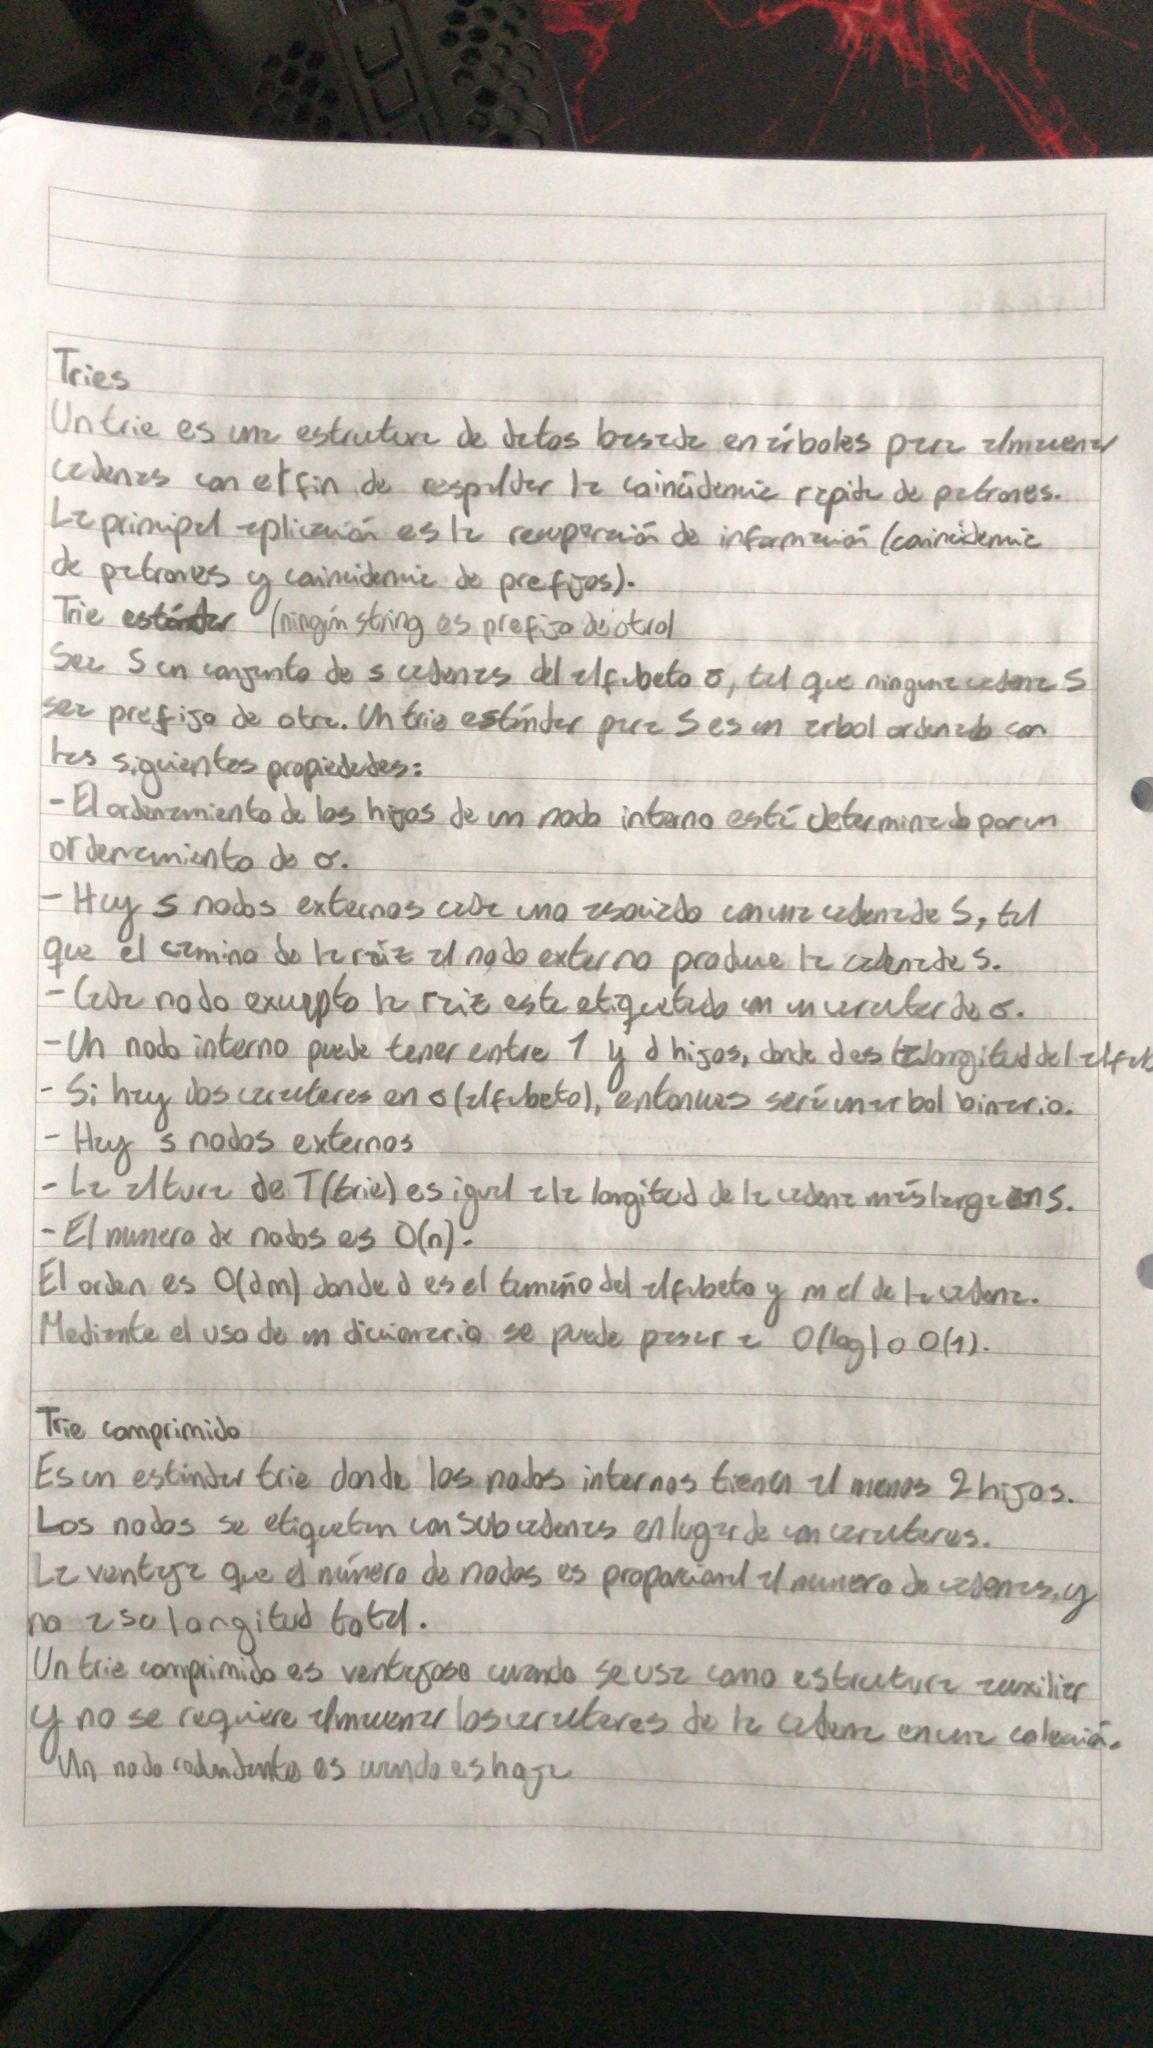 Tries
Un trie es una estructura de datos basada en árboles para almacenar
cadenas con el fin de respaldar la coincidencia rapida de patrones.
La principal aplicación es la recuperación de información (coincidencia
de patrones y coincidencia de prefijos).
Trie estándar (ningún string es prefijo de otro)
Sea S un conjunto de s cadenas del alfabeto σ, tal que ninguna cadena S
sea prefijo de otra. Un trie estándar para S es un arbol ordenado con
las siguientes propiedades:
- El ordenamiento de los hijos de un nodo interno está determinado por un
ordenamiento de σ.
- Hay s nodos externos cada uno asociado con una cadena de S, tal
que el camino de la raíz al nodo externo produce la cadena de S.
- Cada nodo excepto la raiz esta etiquetado con un caracter de σ.
- Un nodo interno puede tener entre 1 y d hijos, donde d es la longitud del alfab
- Si hay dos caracteres en σ (alfabeto), entonces será un arbol binario.
- Hay s nodos externos
- La altura de T(trie) es igual a la longitud de la cadena más larga en S.
- El numero de nodos es O(n).
El orden es O(dm) donde d es el tamaño del alfabeto y m el de la cadena.
Mediante el uso de un diccionario se puede pasar a O(log) o O(1).
Trie comprimido
Es un estándar trie donde los nodos internos tienen al menos 2 hijos.
Los nodos se etiquetan con subcadenas en lugar de con caracteres.
La ventaja que el número de nodos es proporcional al numero de cadenas, y
no a su longitud total.
Un trie comprimido es ventajoso cuando se usa como estructura auxiliar
y no se requiere almacenar los caracteres de la cadena en una colección.
Un nodo redundante es cuando es hoja